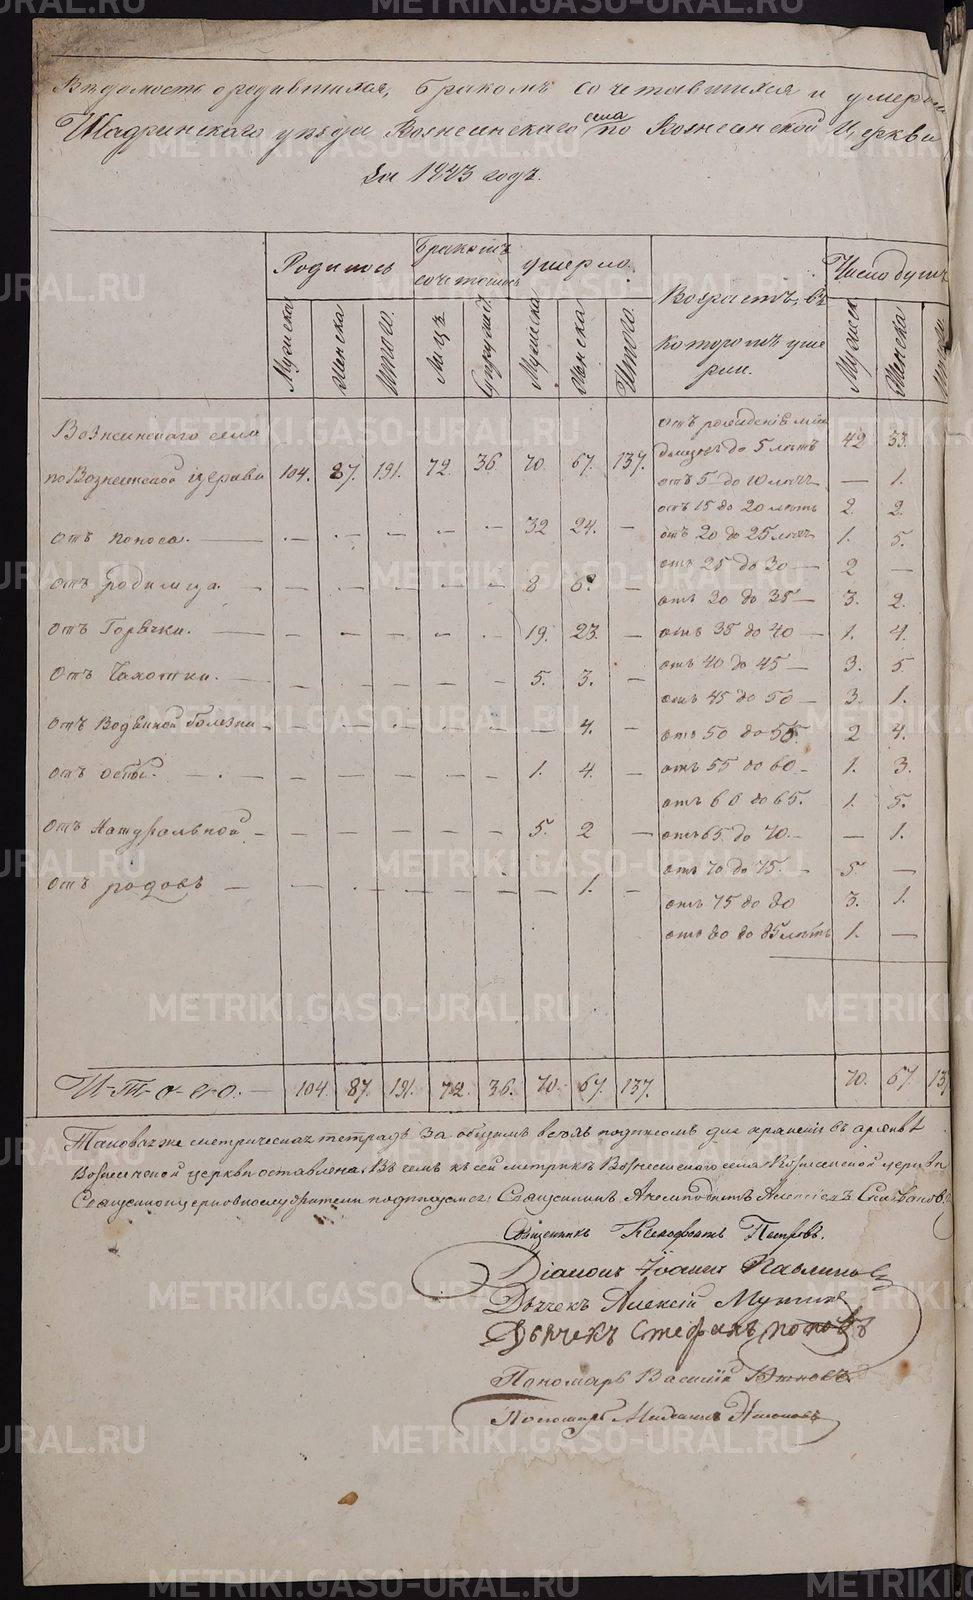 Вѣдомость о родившихся, бракомъ сочетавшихся и умерш
Шадринскаго уѣзда Вознесенскаго села по Вознесенской Церкви
За 1843 годъ.
Родилось
Бракомъ сочеталось
умерло.
Возрастъ, въ которомъ умерли.
Число душъ
Мужеска
Женска
Итого.
Лицъ
Супружес
Мужеска
Женска
Итого.
Мужеск
Женска
Итого
Вознесенскаго села
по Вознесенской церкви 104. 87. 191. 72. 36. 70. 67. 137.
отъ поноса. — — — — — — 32 24. —
отъ родимца — — — — — — 8 6. —
отъ Горячки. — — — — — — 19. 23. —
отъ Чахотки. — — — — — — 5. 3. —
отъ Водяной болезни — — — — — — — 4. —
отъ оспы. — — — — — — 1. 4. —
отъ Натуральной — — — — — — 5. 2 —
отъ родовъ — — — — — — — 1. —
отъ рожденія мла
денцовъ до 5 лѣтъ 42 33.
отъ 5 до 10 лѣтъ — 1.
отъ 15 до 20 лѣтъ 2. 2.
отъ 20 до 25 лѣтъ 1. 5.
отъ 25 до 30 — 2 —
отъ 30 до 35 — 3. 2.
отъ 35 до 40 — 1. 4.
отъ 40 до 45 — 3. 5
отъ 45 до 50 — 3. 1.
отъ 50 до 55. 2 4.
отъ 55 до 60 — 1. 3.
отъ 60 до 65. 1. 5.
отъ 65 до 70. — — 1.
отъ 70 до 75. 5. —
отъ 75 до 80 3. 1.
отъ 80 до 85 лѣтъ 1. —
И-т-о-г-о. — 104. 87. 191. 72. 36. 70. 67. 137. 70. 67. 137
Таковая же метрическая тетрадь за общимъ всѣхъ подписомъ для храненія въ архивѣ
Вознесенской церкви оставлена. Въ чемъ къ сей метрикѣ Вознесенскаго села Вознесенской церкви
Священноцерковнослужители подписуемся: Священникъ Алексѣй
Священникъ Ксенофонтъ Петровъ.
Діаконъ Іоаннъ Павлиновъ
Дьячекъ Алексій
Дьячекъ Стефанъ Поповъ
Пономарь Василій
Пономарь
METRIKI.GASO-URAL.RU